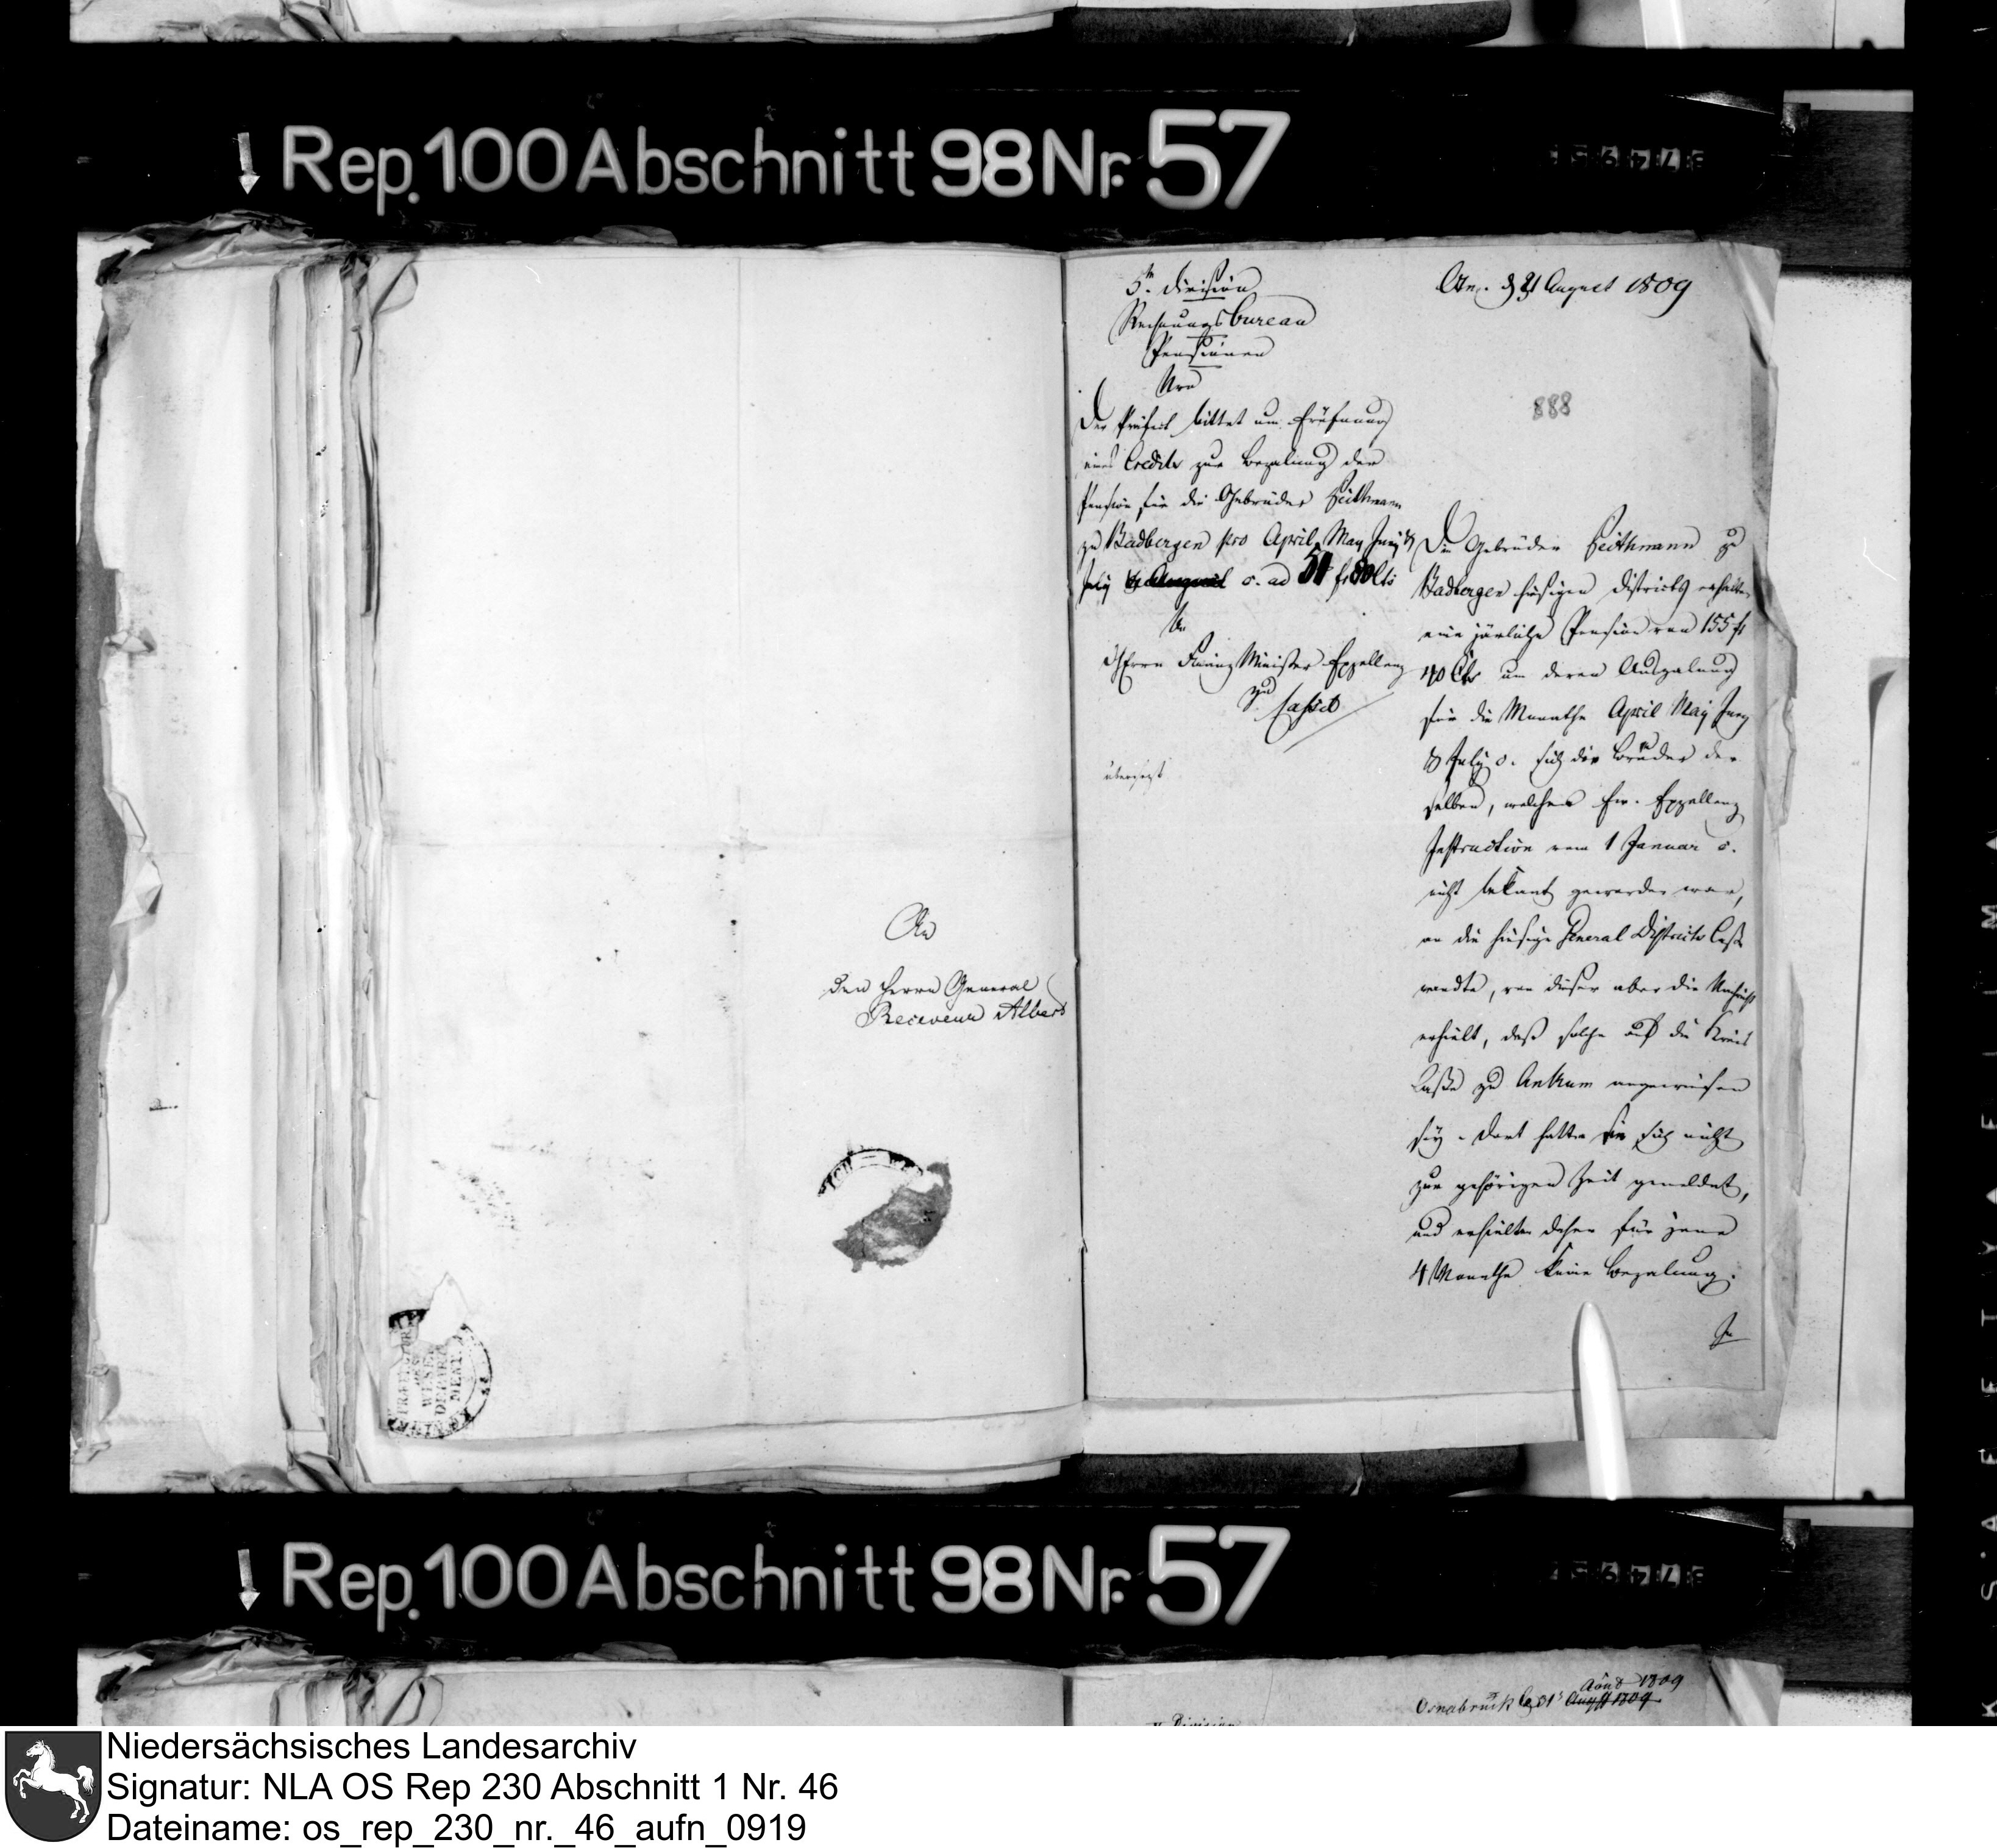 Rep. 100 Abschnitt 98 Nr. 57
An
den Herrn General
Receveur Albers
PREFECTUR
DES
WESER
DEPARTE
MENT
5te Division
Rechnungsbureau
Pensionen
Nro
Der Präfect bittet um Eröfnung
eines Credits zur Bezalung der
Pension für die Gebrüder Heithmann
zu Badbergen pro April, May Juny &
July c. ad 51 fr 80 Cts
An
Herrn Finanz Minister Exzellenz
zu Cassel
übersezt
Osn. d 31 August 1809
888
Die Gebrüder Heithmann zu
Badbergen hiesigen Districts erhalten
eine järliche Pension von 155 fr
40 Cts um deren Auszalung
für die Monathe April May Juny
& July c. sich die Brüder der
selben, welchen Ew. Exzellenz
Instruction vom 1 Januar c.
nicht bekant geworden war,
an die hiesige General Districts Casse
wandte, von dieser aber die Nachricht
erhielt, daß solche auf die Kreis
Casse zu Ankum angewiesen
sey. Dort hatten sie sich nicht
zur gehörigen Zeit gemeldet,
und erhielten daher für jene
4 Monathe keine Bezalung.
In
Rep. 100 Abschnitt 98 Nr. 57
Août 1809
Osnabrück le 31 Augst 1809
Division
Niedersächsisches Landesarchiv
Signatur: NLA OS Rep 230 Abschnitt 1 Nr. 46
Dateiname: os_rep_230_nr._46_aufn_0919